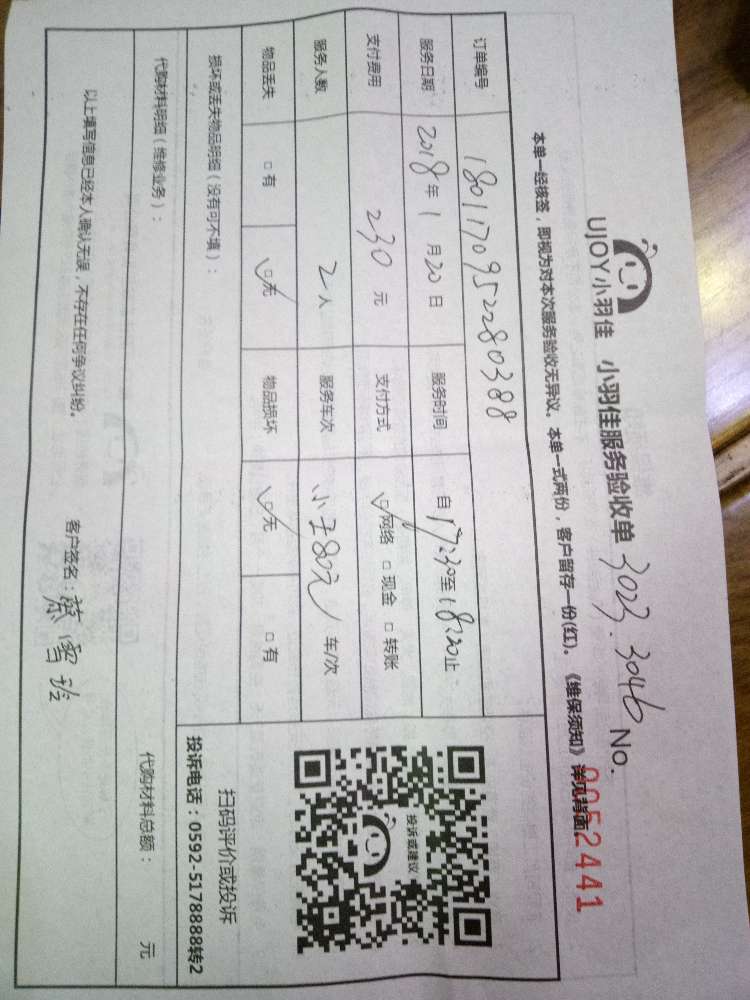 UJOY小羽佳 小羽佳服务验收单 3023.3046 No. 0052441
本单一经核签，即视为对本次服务验收无异议。本单一式两份，客户留存一份(红)。《维保须知》详见背面
订单编号 18011709522280388
服务日期 2018年1月20日 服务时间 自17:30至18:20止
支付费用 230元 支付方式 ☑网络 □现金 □转账
服务人数 2人 服务车次 小车80元/车/次
物品丢失 □有 ☑无 物品损坏 ☑无 □有
损坏或丢失物品明细（没有可不填）：
投诉或建议
扫码评价或投诉
投诉电话：0592-5178888转2
代购材料明细（维修业务）： 代购材料总额： 元
以上填写信息已经本人确认无误，不存在任何争议纠纷。 客户签名：蔡雪